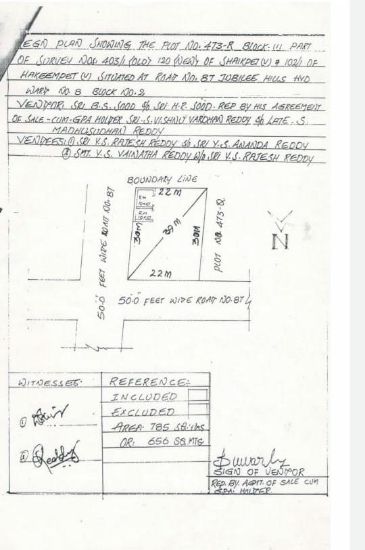 REGN PLAN SHOWING THE PLOT NO. 473-R BLOCK-III PART
OF SURVEY NOS 403/1 (OLD) 120 (NEW) OF SHAIKPET (V) & 102/1 OF
HAKEEMPET (V) SITUATED AT ROAD NO. 87 JUBILEE HILLS HYD
WARD NO 8 BLOCK NO. 2
VENDOR: SRI B.S. SOOD S/o SRI H.R. SOOD. REP BY HIS AGREEMENT
OF SALE-CUM-GPA HOLDER SRI. S. VISHNU VARDHAN REDDY S/o LATE. S.
MADHUSUDHAN REDDY
VENDEES: ① SRI V.S. RAJESH REDDY S/o SRI V.S. ANANDA REDDY
② SMT. V.S. VAINATHA REDDY W/o SRI V.S. RAJESH REDDY
BOUNDARY LINE
22 M
30M
39 M
30M
22 M
50-0 FEET WIDE ROAD NO. 87
PLOT NO. 473-Q
N
50-0 FEET WIDE ROAD NO-87
WITNESSES:
①
②
REFERENCE:
INCLUDED
EXCLUDED
AREA: 785 SQ. YDS
OR: 656 SQ. MTS
SIGN OF VENDOR
REP. BY. AGMT. OF SALE CUM
GPA: HOLDER